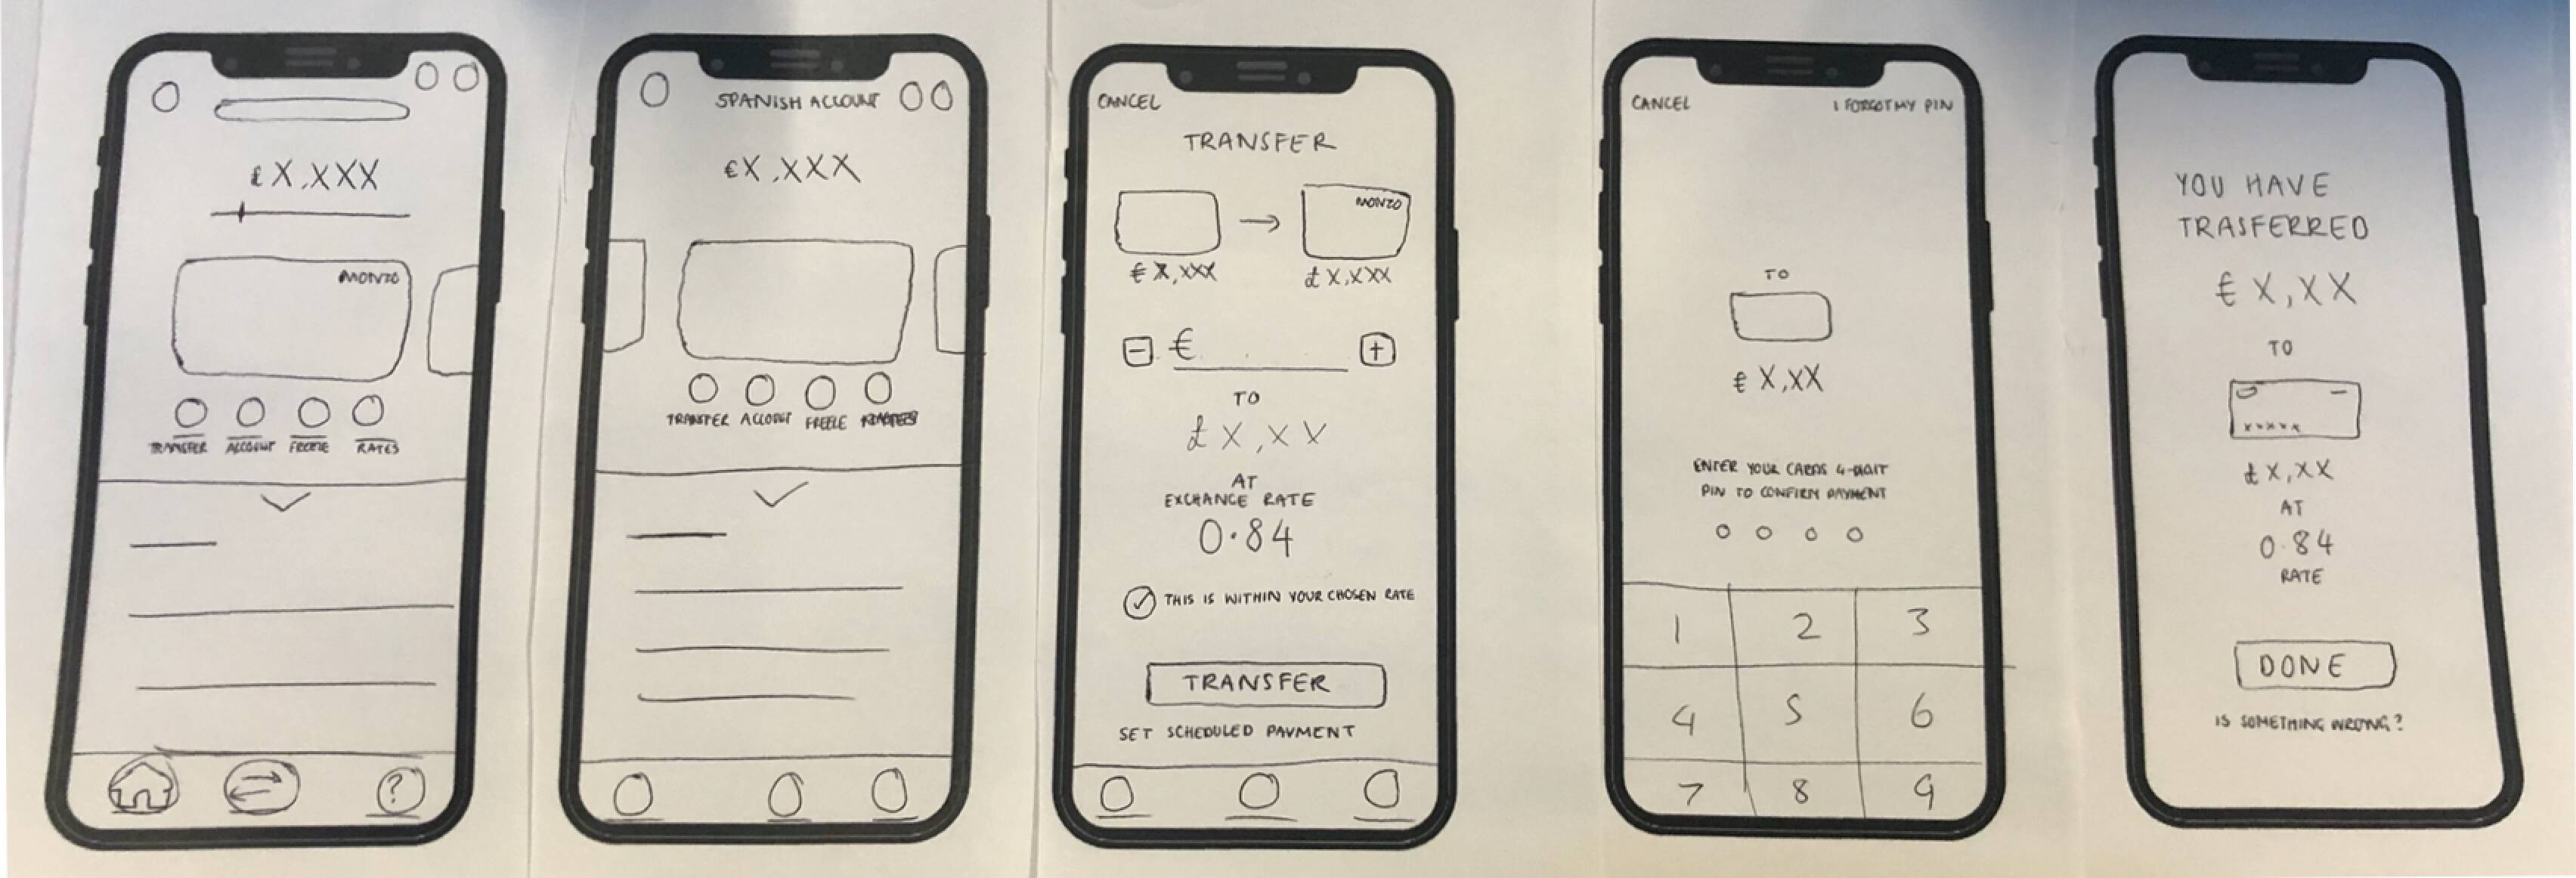 £X,XXX
MONZO
TRANSFER ACCOUNT FREEZE RATES
?
SPANISH ACCOUNT
€X,XXX
TRANSFER ACCOUNT FREEZE
CANCEL
TRANSFER
MONZO
€X,XXX £X,XXX
- € +
TO
£X,XX
AT
EXCHANGE RATE
0.84
THIS IS WITHIN YOUR CHOSEN RATE
TRANSFER
SET SCHEDULED PAYMENT
CANCEL I FORGOT MY PIN
TO
€X,XX
ENTER YOUR CARDS 4-DIGIT
PIN TO CONFIRM PAYMENT
1 2 3
4 5 6
7 8 9
YOU HAVE
TRASFERRED
€X,XX
TO
XXXXX
£X,XX
AT
0.84
RATE
DONE
IS SOMETHING WRONG?